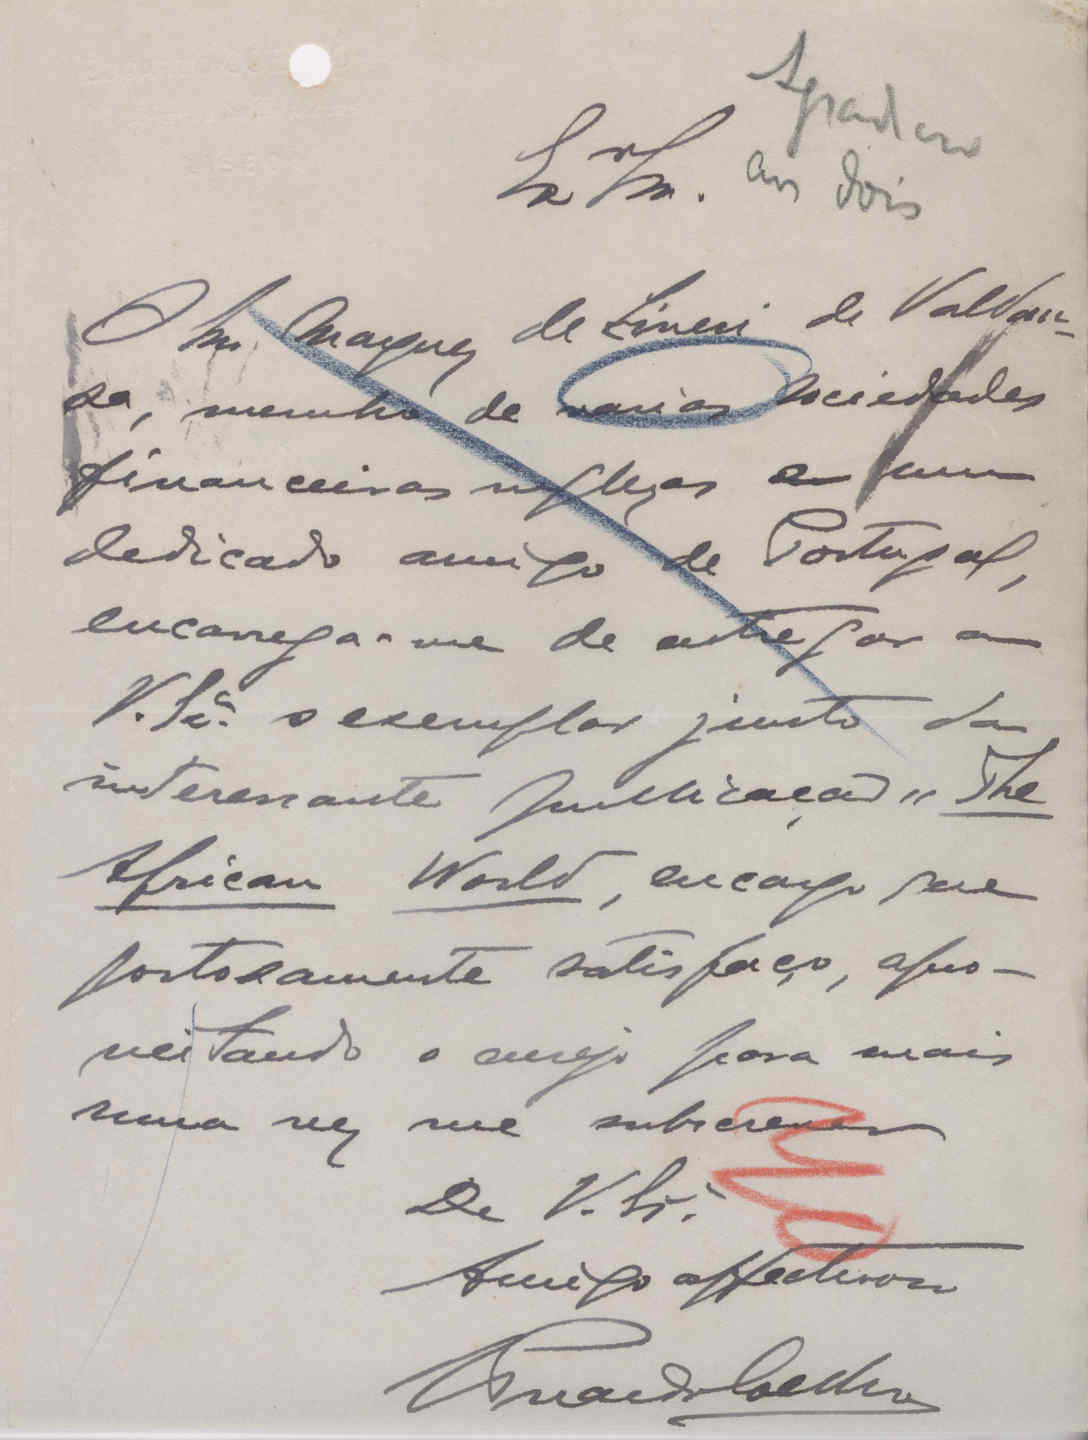 Agradecer
aos dois
Ex Sr.
O Sr. Marquez de de Valdau-
sa, membro de varias sociedades
financeiras inglezas e um
dedicado amigo de Portugal,
encarrega-me de entregar a
V. Sª. o exemplar junto da
interessante publicação "The
African World, encargo que
gostosamente satisfaço, apro-
veitando o ensejo para mais
uma vez me subscrever
De V. Sª.
Amigo affectuoso
Coelho